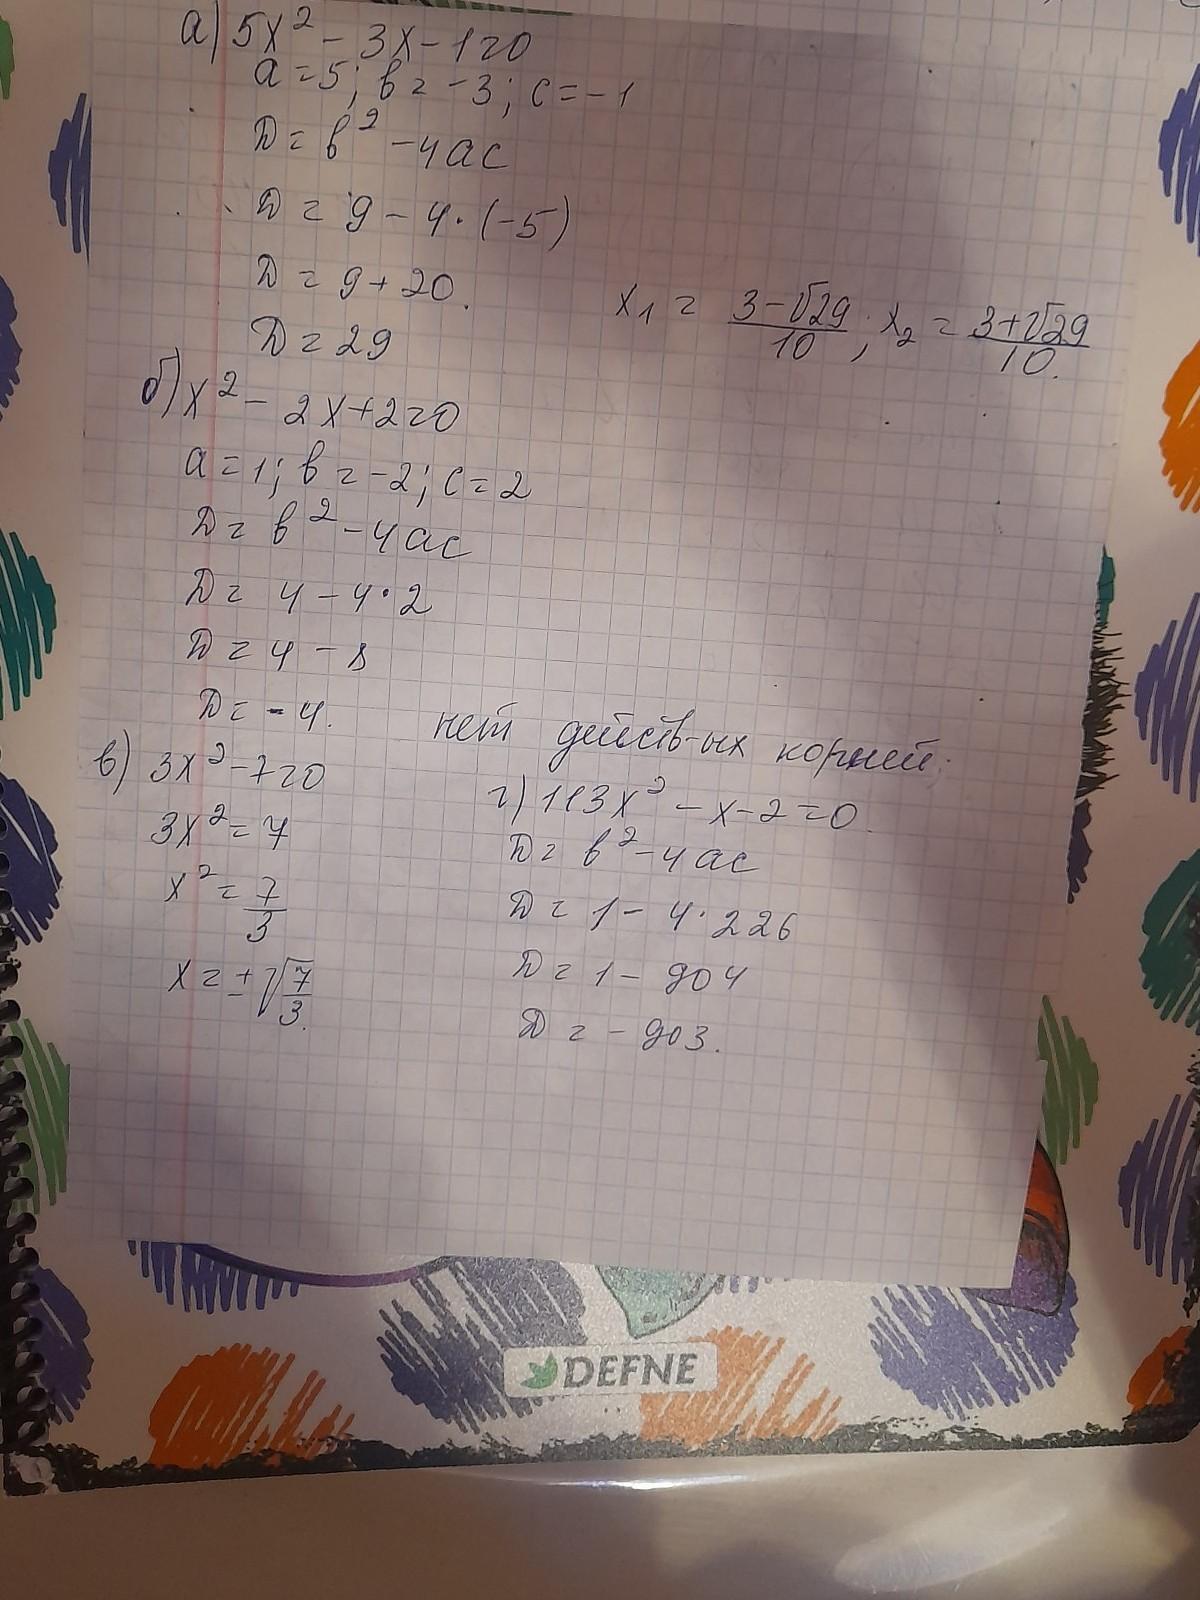 а) 5x² - 3x - 1 = 0
a = 5; в = -3; c = -1
Д = в² - 4ac
Д = 9 - 4·(-5)
Д = 9 + 20.
Д = 29
x₁ = (3-√29)/10; x₂ = (3+√29)/10.
б) x² - 2x + 2 = 0
a = 1; в = -2; c = 2
Д = в² - 4ac
Д = 4 - 4·2
Д = 4 - 8
Д = -4. нет действ-ых корней;
в) 3x² - 7 = 0
3x² = 7
x² = 7/3
x = ±√(7/3).
г) 113x² - x - 2 = 0.
Д = в² - 4ac
Д = 1 - 4·226
Д = 1 - 904
Д = -903.
DEFNE